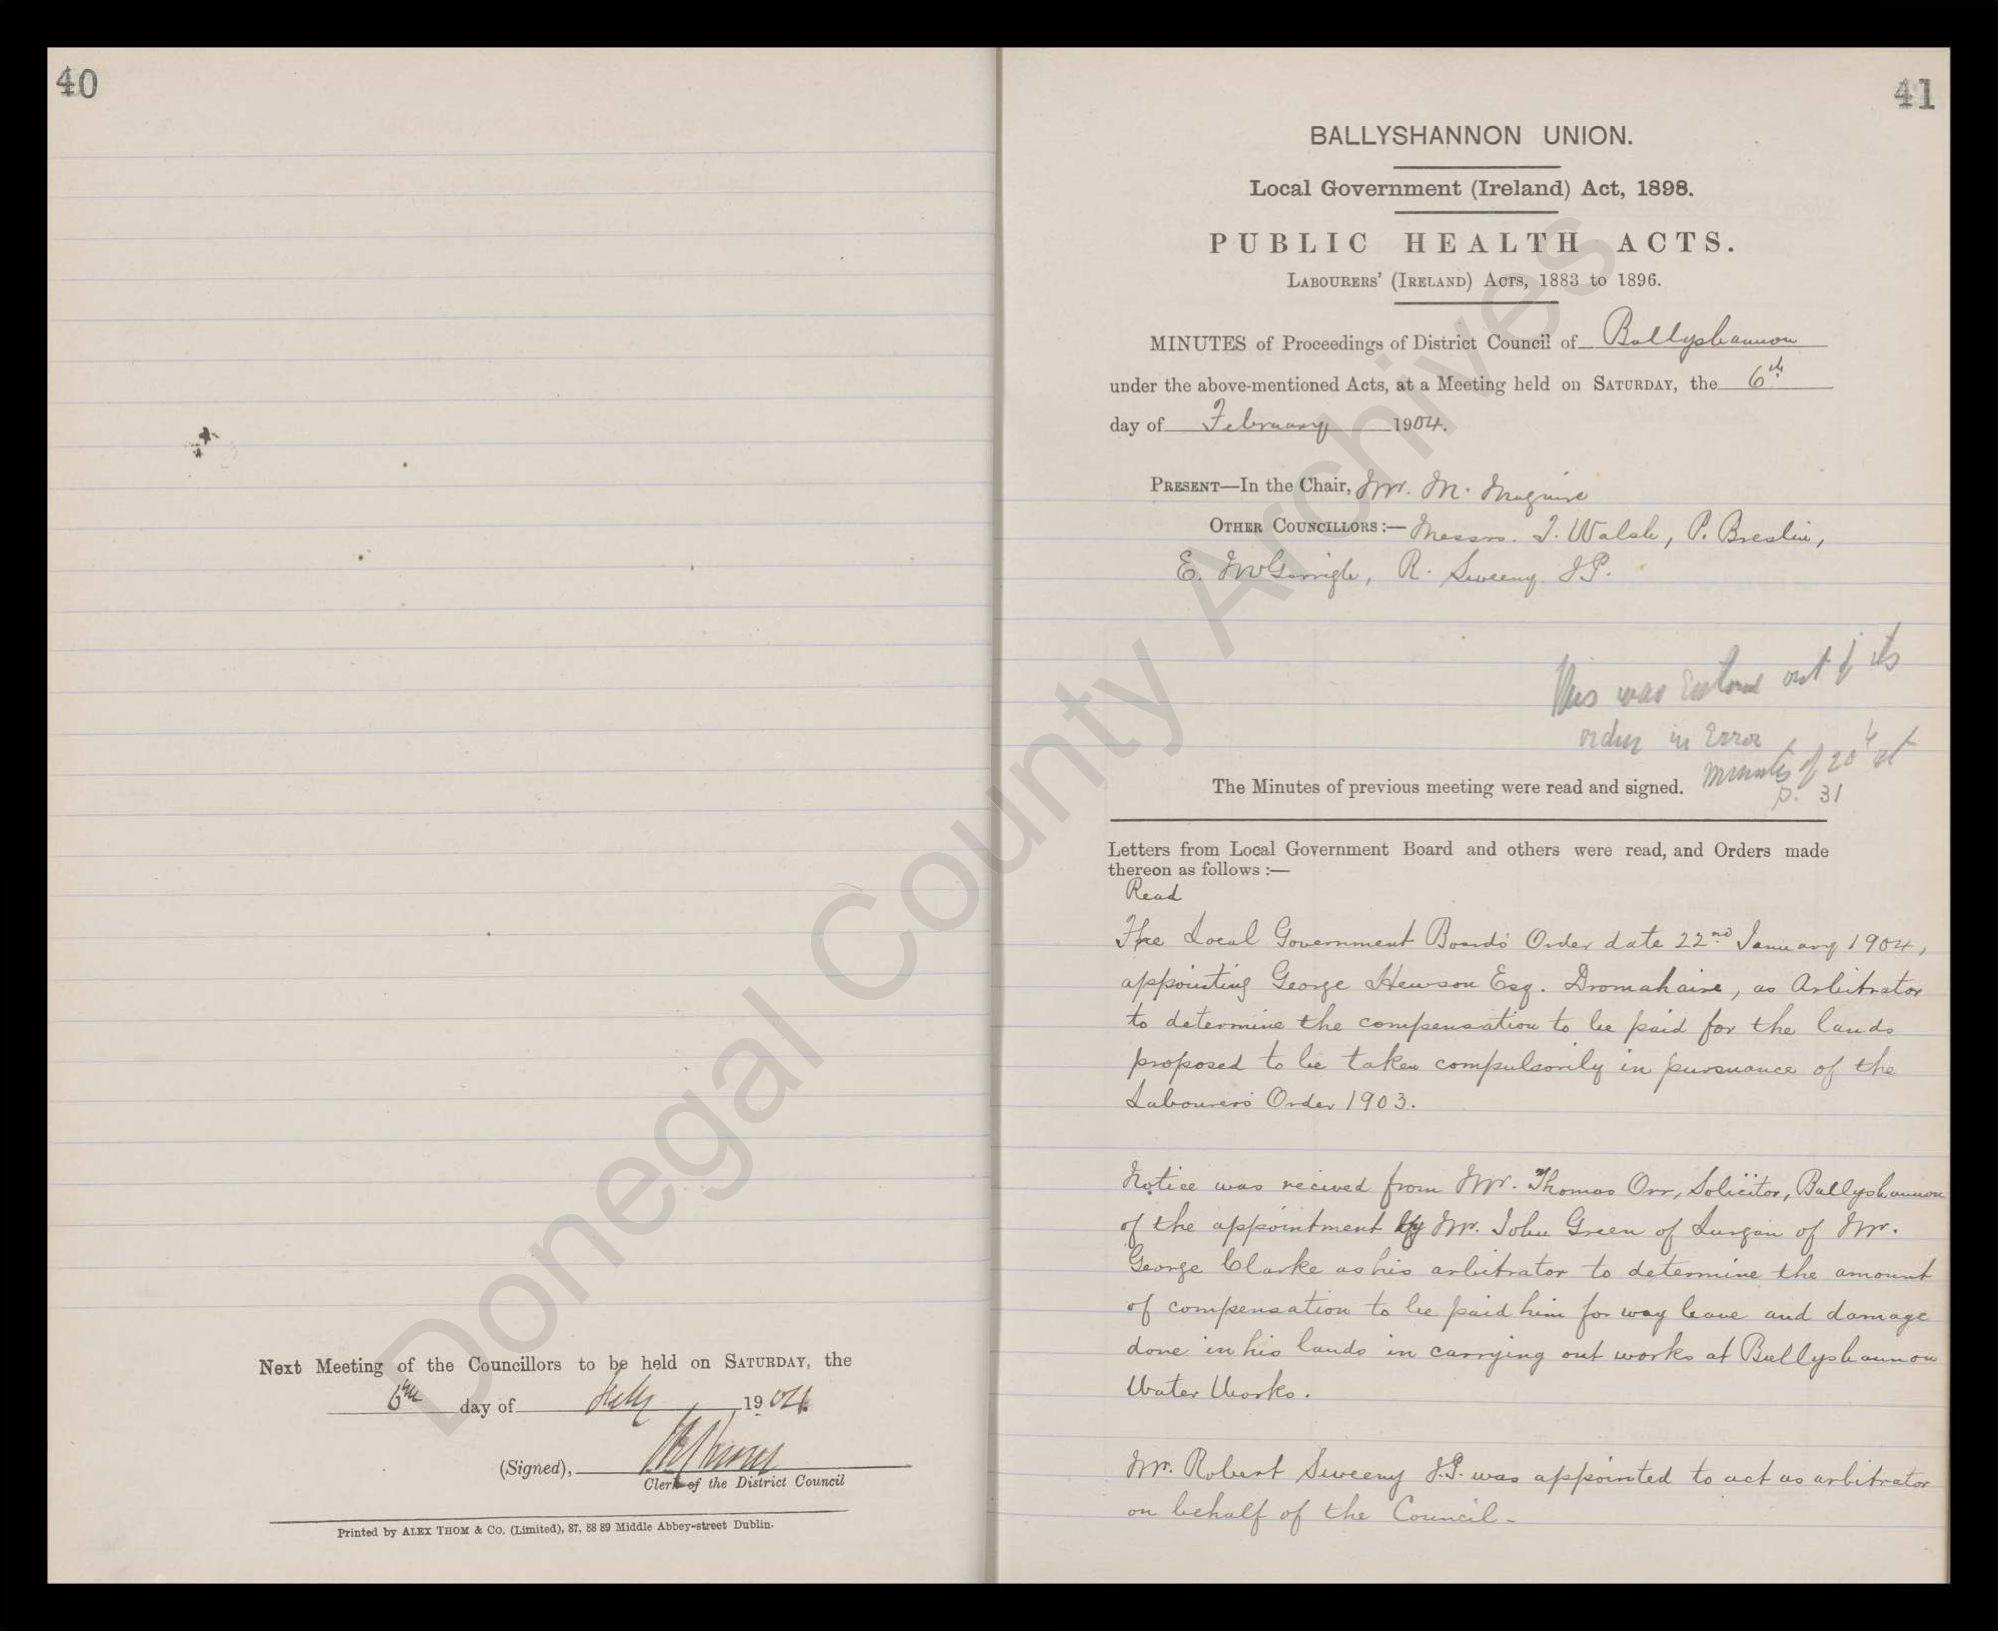 40
Next Meeting of the Councillors to be held on SATURDAY, the
6th day of Feby 1904.
(Signed),
Clerk of the District Council
Printed by ALEX THOM & Co. (Limited), 87, 88 89 Middle Abbey-street Dublin.
41
BALLYSHANNON UNION.
Local Government (Ireland) Act, 1898.
PUBLIC HEALTH ACTS.
LABOURERS' (IRELAND) ACTS, 1883 to 1896.
MINUTES of Proceedings of District Council of Ballyshannon
under the above-mentioned Acts, at a Meeting held on SATURDAY, the 6th
day of February 1904.
PRESENT—In the Chair, Mr. M. Maguire
OTHER COUNCILLORS:— Messrs. J. Walsh, P. Breslin,
E. McGarrigle, R. Sweeny J.P.
This was Entered out of its
order in Error
Minutes of 20th
The Minutes of previous meeting were read and signed.
p. 31
Letters from Local Government Board and others were read, and Orders made
thereon as follows :—
Read
The Local Government Boards Order date 22nd January 1904,
appointing George Hewson Esq. Dromahaire, as Arbitrator
to determine the compensation to be paid for the lands
proposed to be taken compulsorily in pursuance of the
Labourers Order 1903.
Notice was recived from Mr. Thomas Orr, Solicitor, Ballyshannon
of the appointment by Mr. John Green of Lurgan of Mr.
George Clarke as his arbitrator to determine the amount
of compensation to be paid him for way leave and damage
done in his lands in carrying out works at Ballyshannon
Water Works.
Mr. Robert Sweeny J.P. was appointed to act as arbitrator
on behalf of the Council -
Donegal County Archives